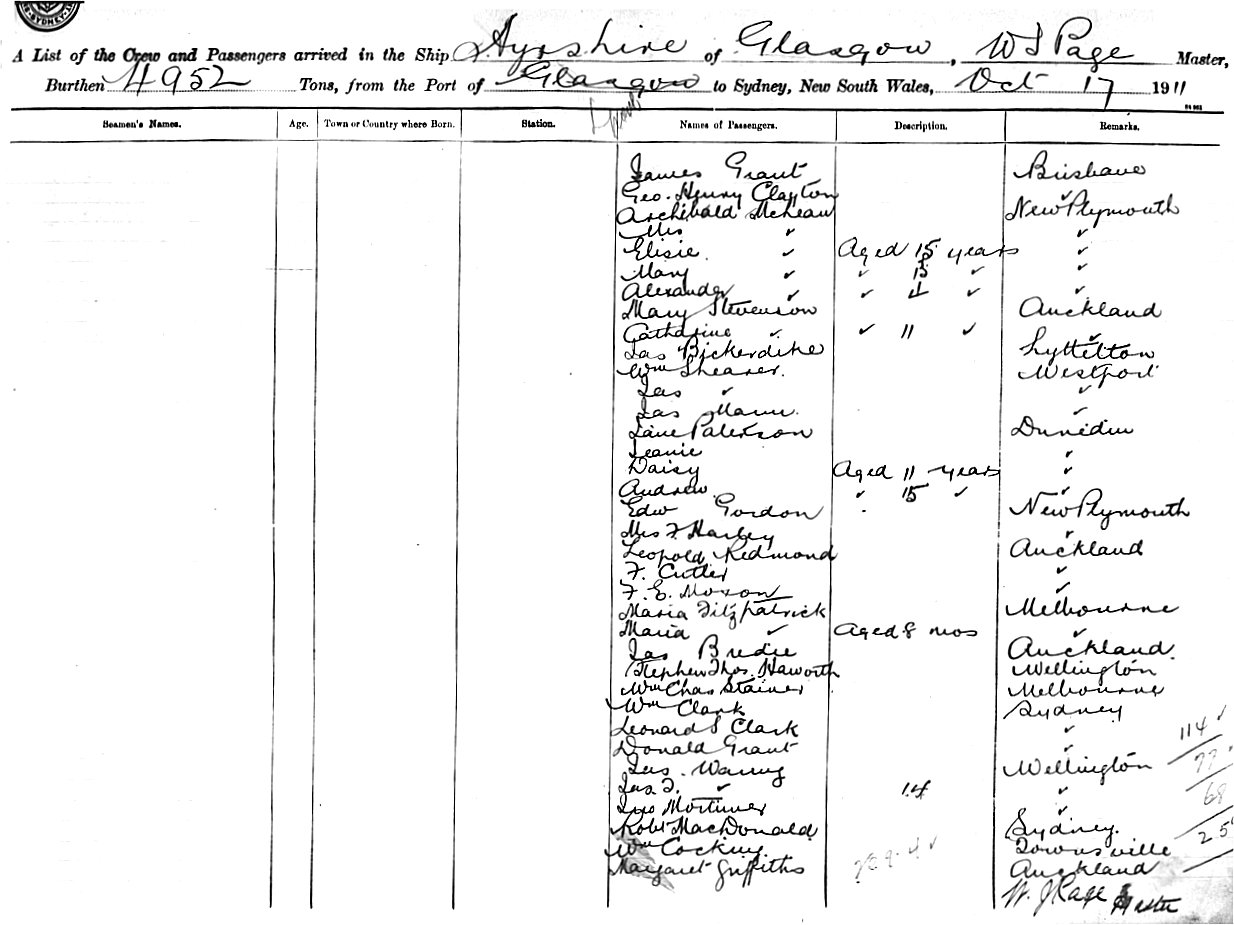 SYDNEY
A List of the Crew and Passengers arrived in the Ship Ayrshire of Glasgow, W J Page Master,
Burthen 4952 Tons, from the Port of Glasgow to Sydney, New South Wales, Oct 17 1911
Seamen's Names. Age. Town or Country where Born. Station. Names of Passengers. Description. Remarks.
James Grant Brisbane
Geo. Henry Clayton ✓
Archibald McLean New Plymouth
Mrs ✓ ✓
Elisie ✓ Aged 15 years ✓
Mary ✓ ✓ 13 ✓ ✓
Alexander ✓ ✓ 4 ✓ ✓
Mary Stevenson Auckland
Catharine ✓ ✓ 11 ✓ ✓
Jas Bickerdike Lyttelton
Wm Shearer. Westport
Jas ✓ ✓
Jas Mann. ✓
Jane Paterson Dunedin
Jeanie ✓
Daisy Aged 11 years ✓
Andrew ✓ 15 ✓ ✓
Edw Gordon New Plymouth
Mrs F. Harley ✓
Leopold Redmond Auckland
F. Cutler ✓
F. E. Moxon ✓
Maria Fitzpatrick Melbourne
Maria ✓ Aged 8 mos ✓
Jas Bredie Auckland.
Stephen Thos. Haworth Wellington
Wm Chas Stainer Melbourne
Wm Clark Sydney
Leonard S Clark ✓
Donald Grant ✓
Jas. Waring Wellington
Jas. F. ✓ 14 ✓
Jno Mortimer ✓
Robt MacDonald Sydney.
Wm Cocking. Townsville
Margaret Griffiths Auckland
W. J Page Master
114 ✓
77 ✓
68
25